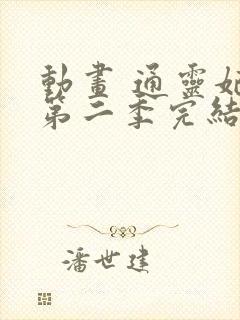 動畫 通靈妃
第二季完結
潘世建